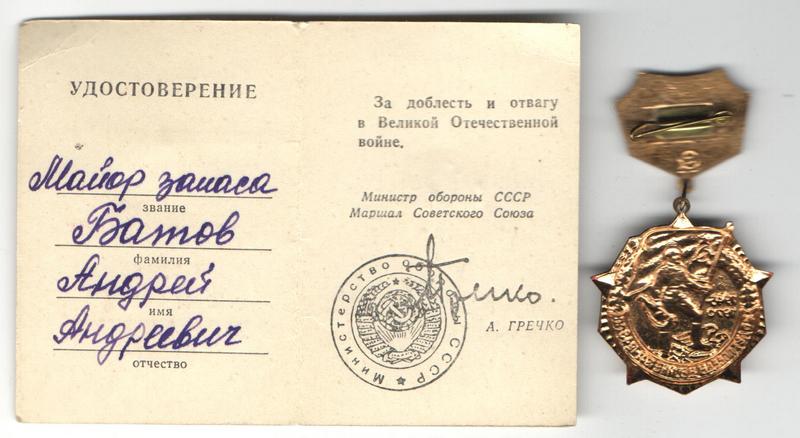 УДОСТОВЕРЕНИЕ
Майор запаса
звание
Батов
фамилия
Андрей
имя
Андреевич
отчество
За доблесть и отвагу
в Великой Отечественной
войне.
Министр обороны СССР
Маршал Советского Союза
Министерство Обороны СССР
Гречко.
А. ГРЕЧКО